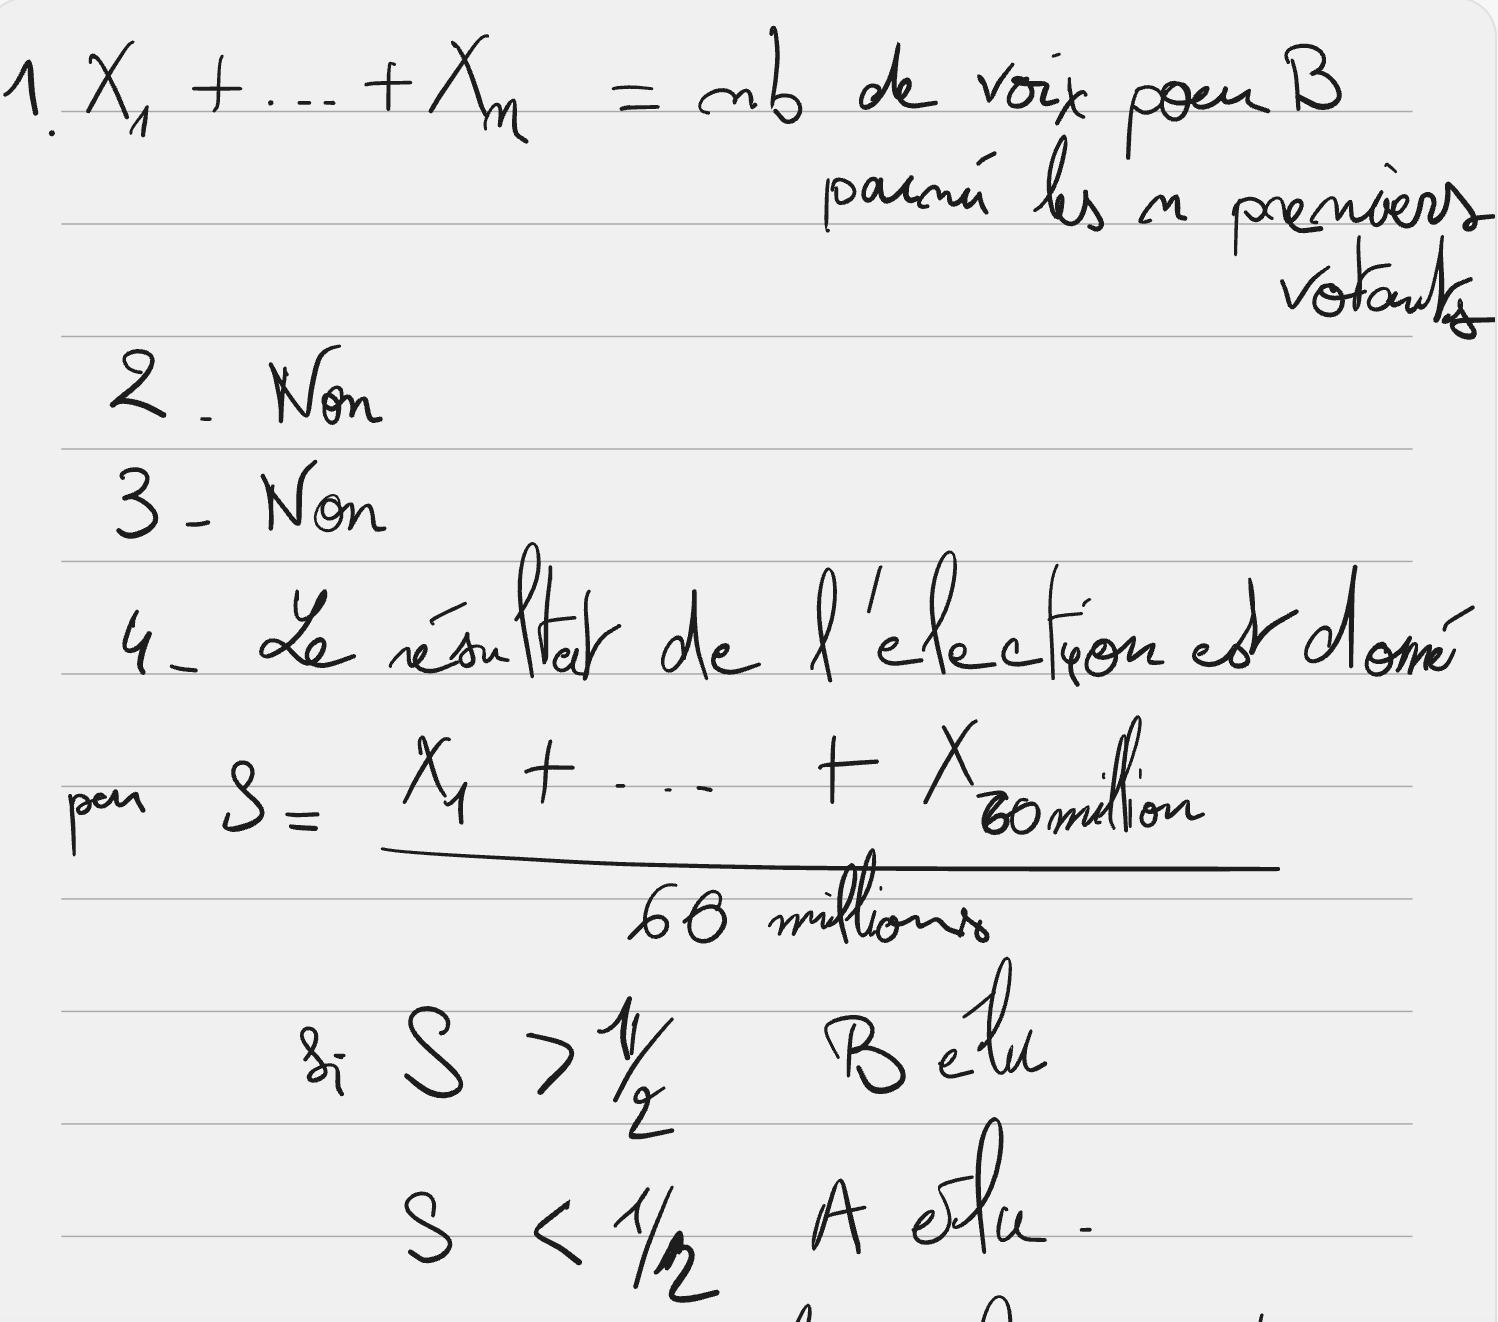 1. X₁ + ... + Xₙ = nb de voix pour B
parmi les n premiers
votants
2. Non
3 - Non
4 - Le résultat de l'election est donné
par S = X₁ + .... + X₆₀ million
60 millions
si S > 1/2 B elu
S < 1/2 A élu -